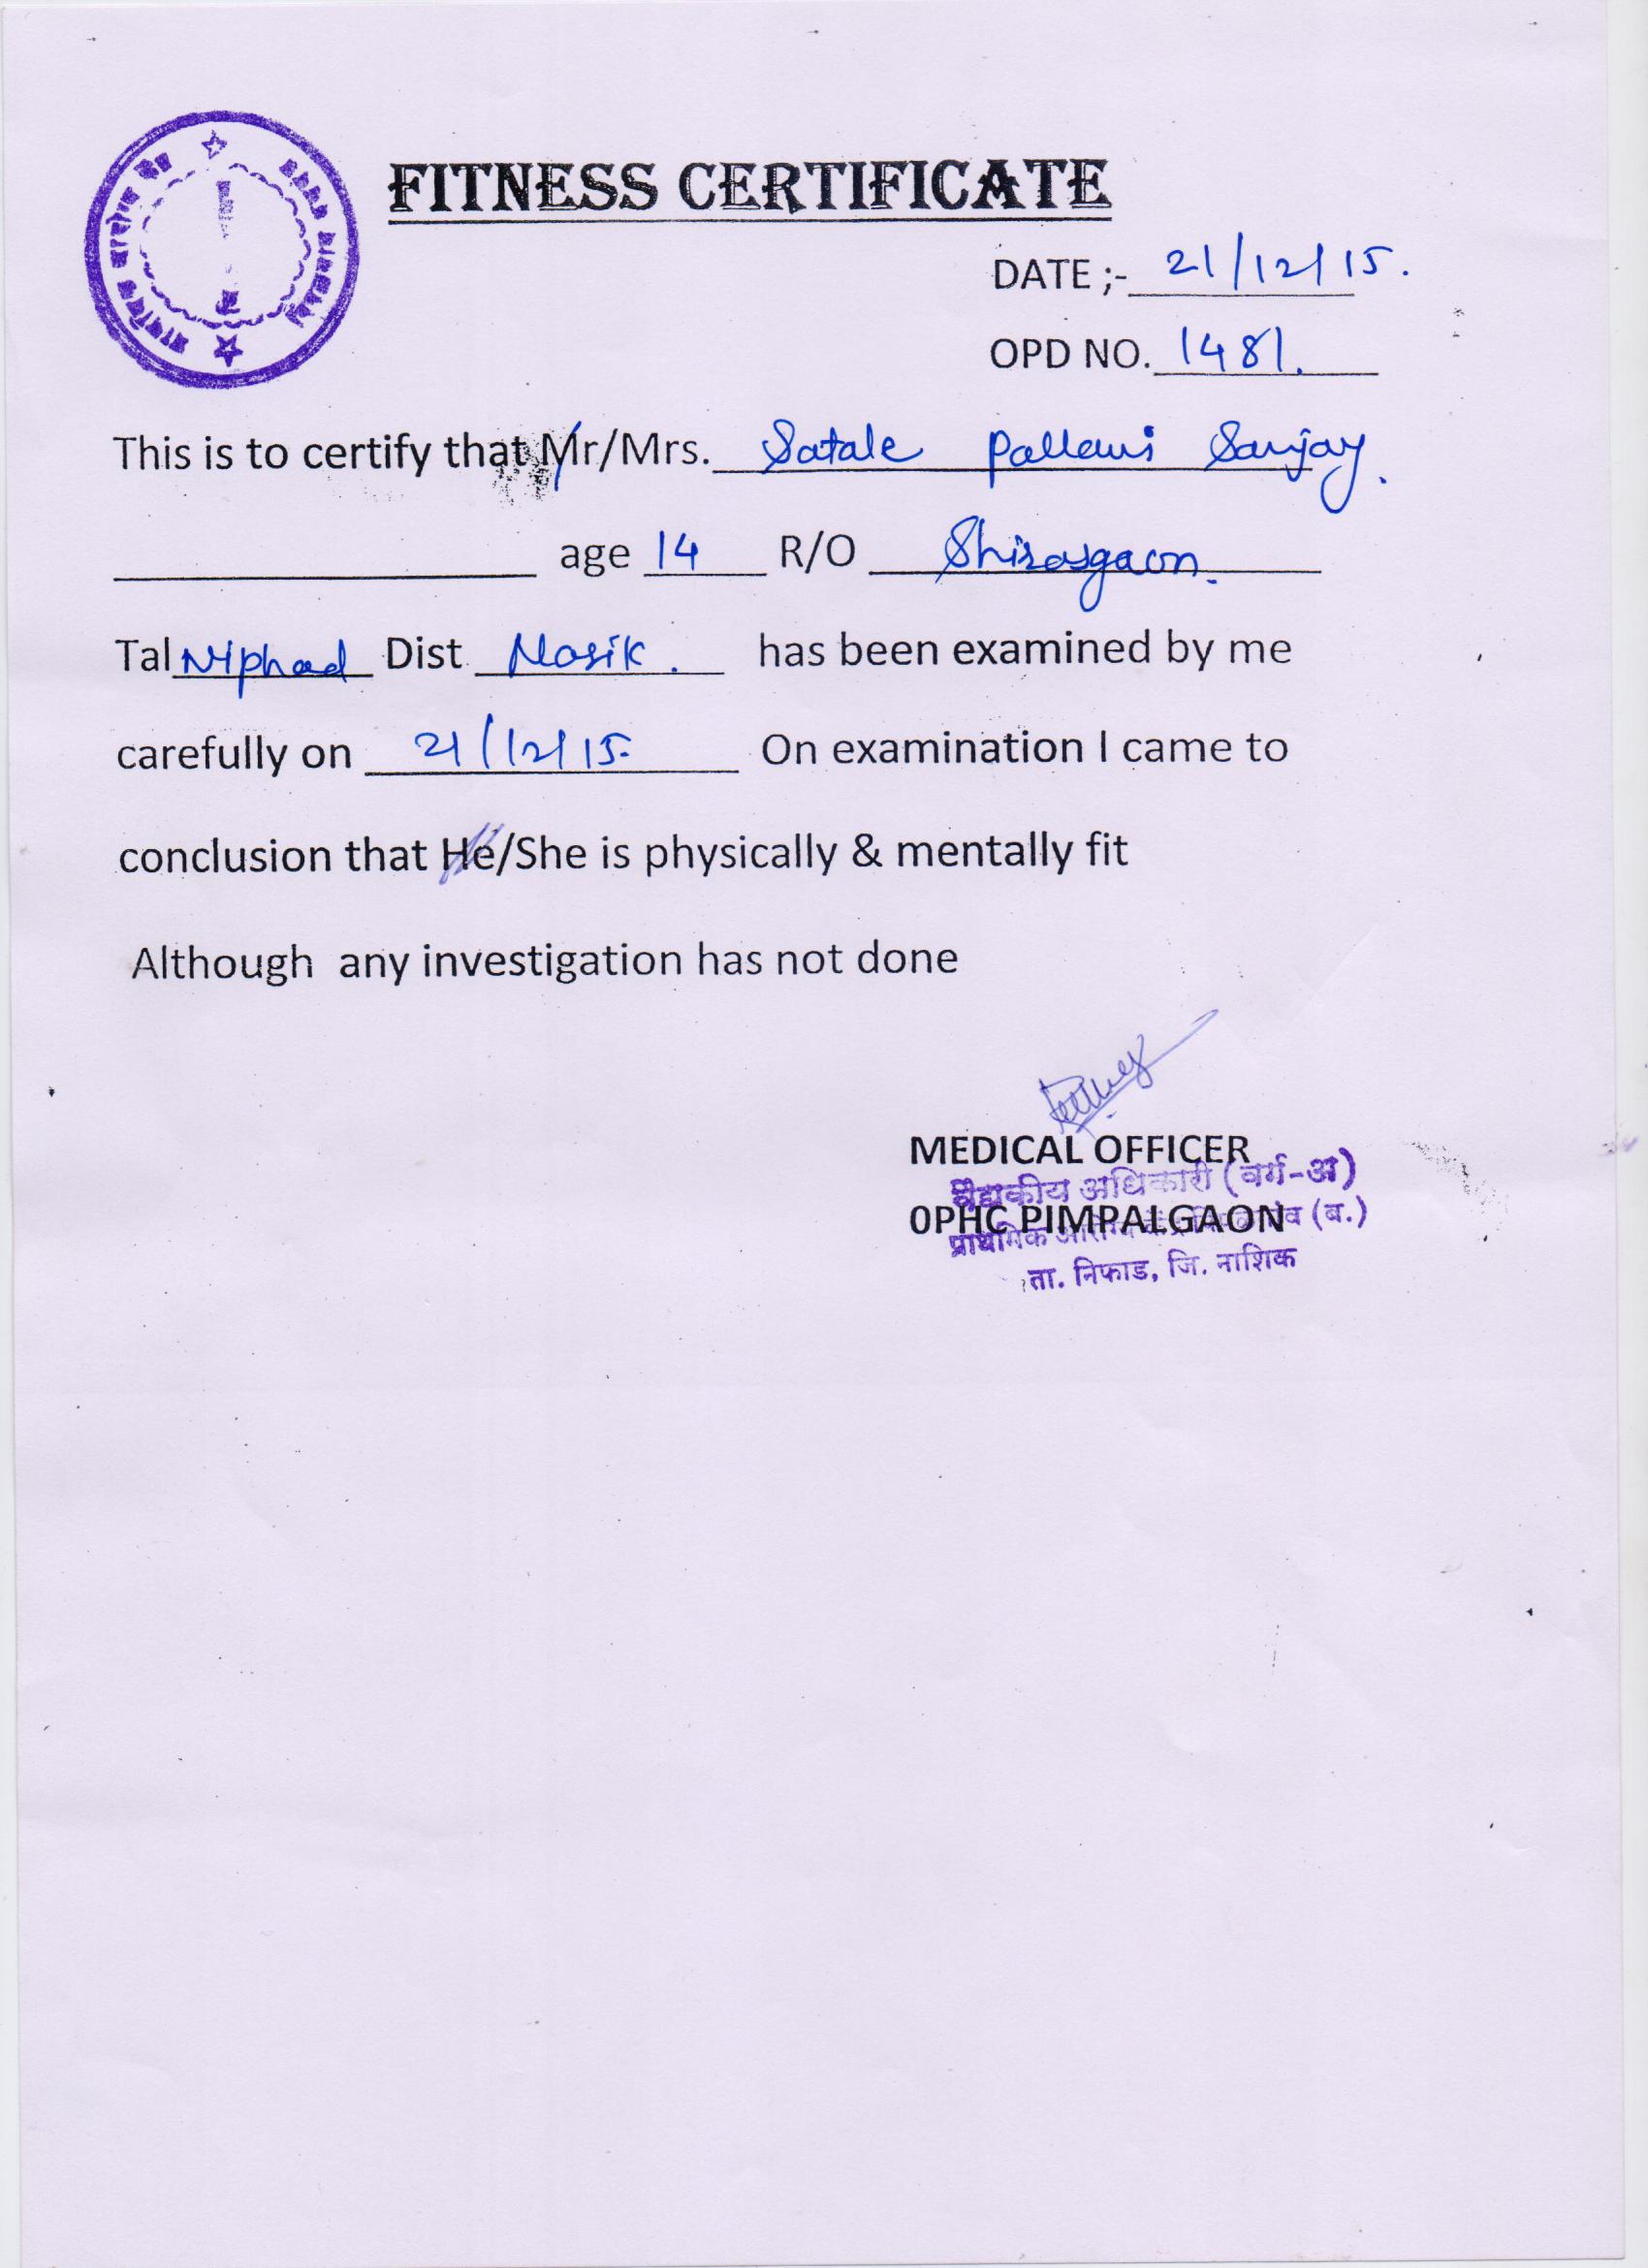 FITNESS CERTIFICATE
DATE ;- 21/12/15.
OPD NO. 1481.
This is to certify that Mr/Mrs. Satale Pallavi Sanjay.
age 14 R/O Shirasgaon.
Tal Niphad Dist Nasik. has been examined by me
carefully on 21/12/15. On examination I came to
conclusion that He/She is physically & mentally fit
Although any investigation has not done
MEDICAL OFFICER
वैद्यकीय अधिकारी (वर्ग-अ)
0PHC PIMPALGAON
प्राथमिक आरोग्य (ब.)
ता. निफाड, जि. नाशिक